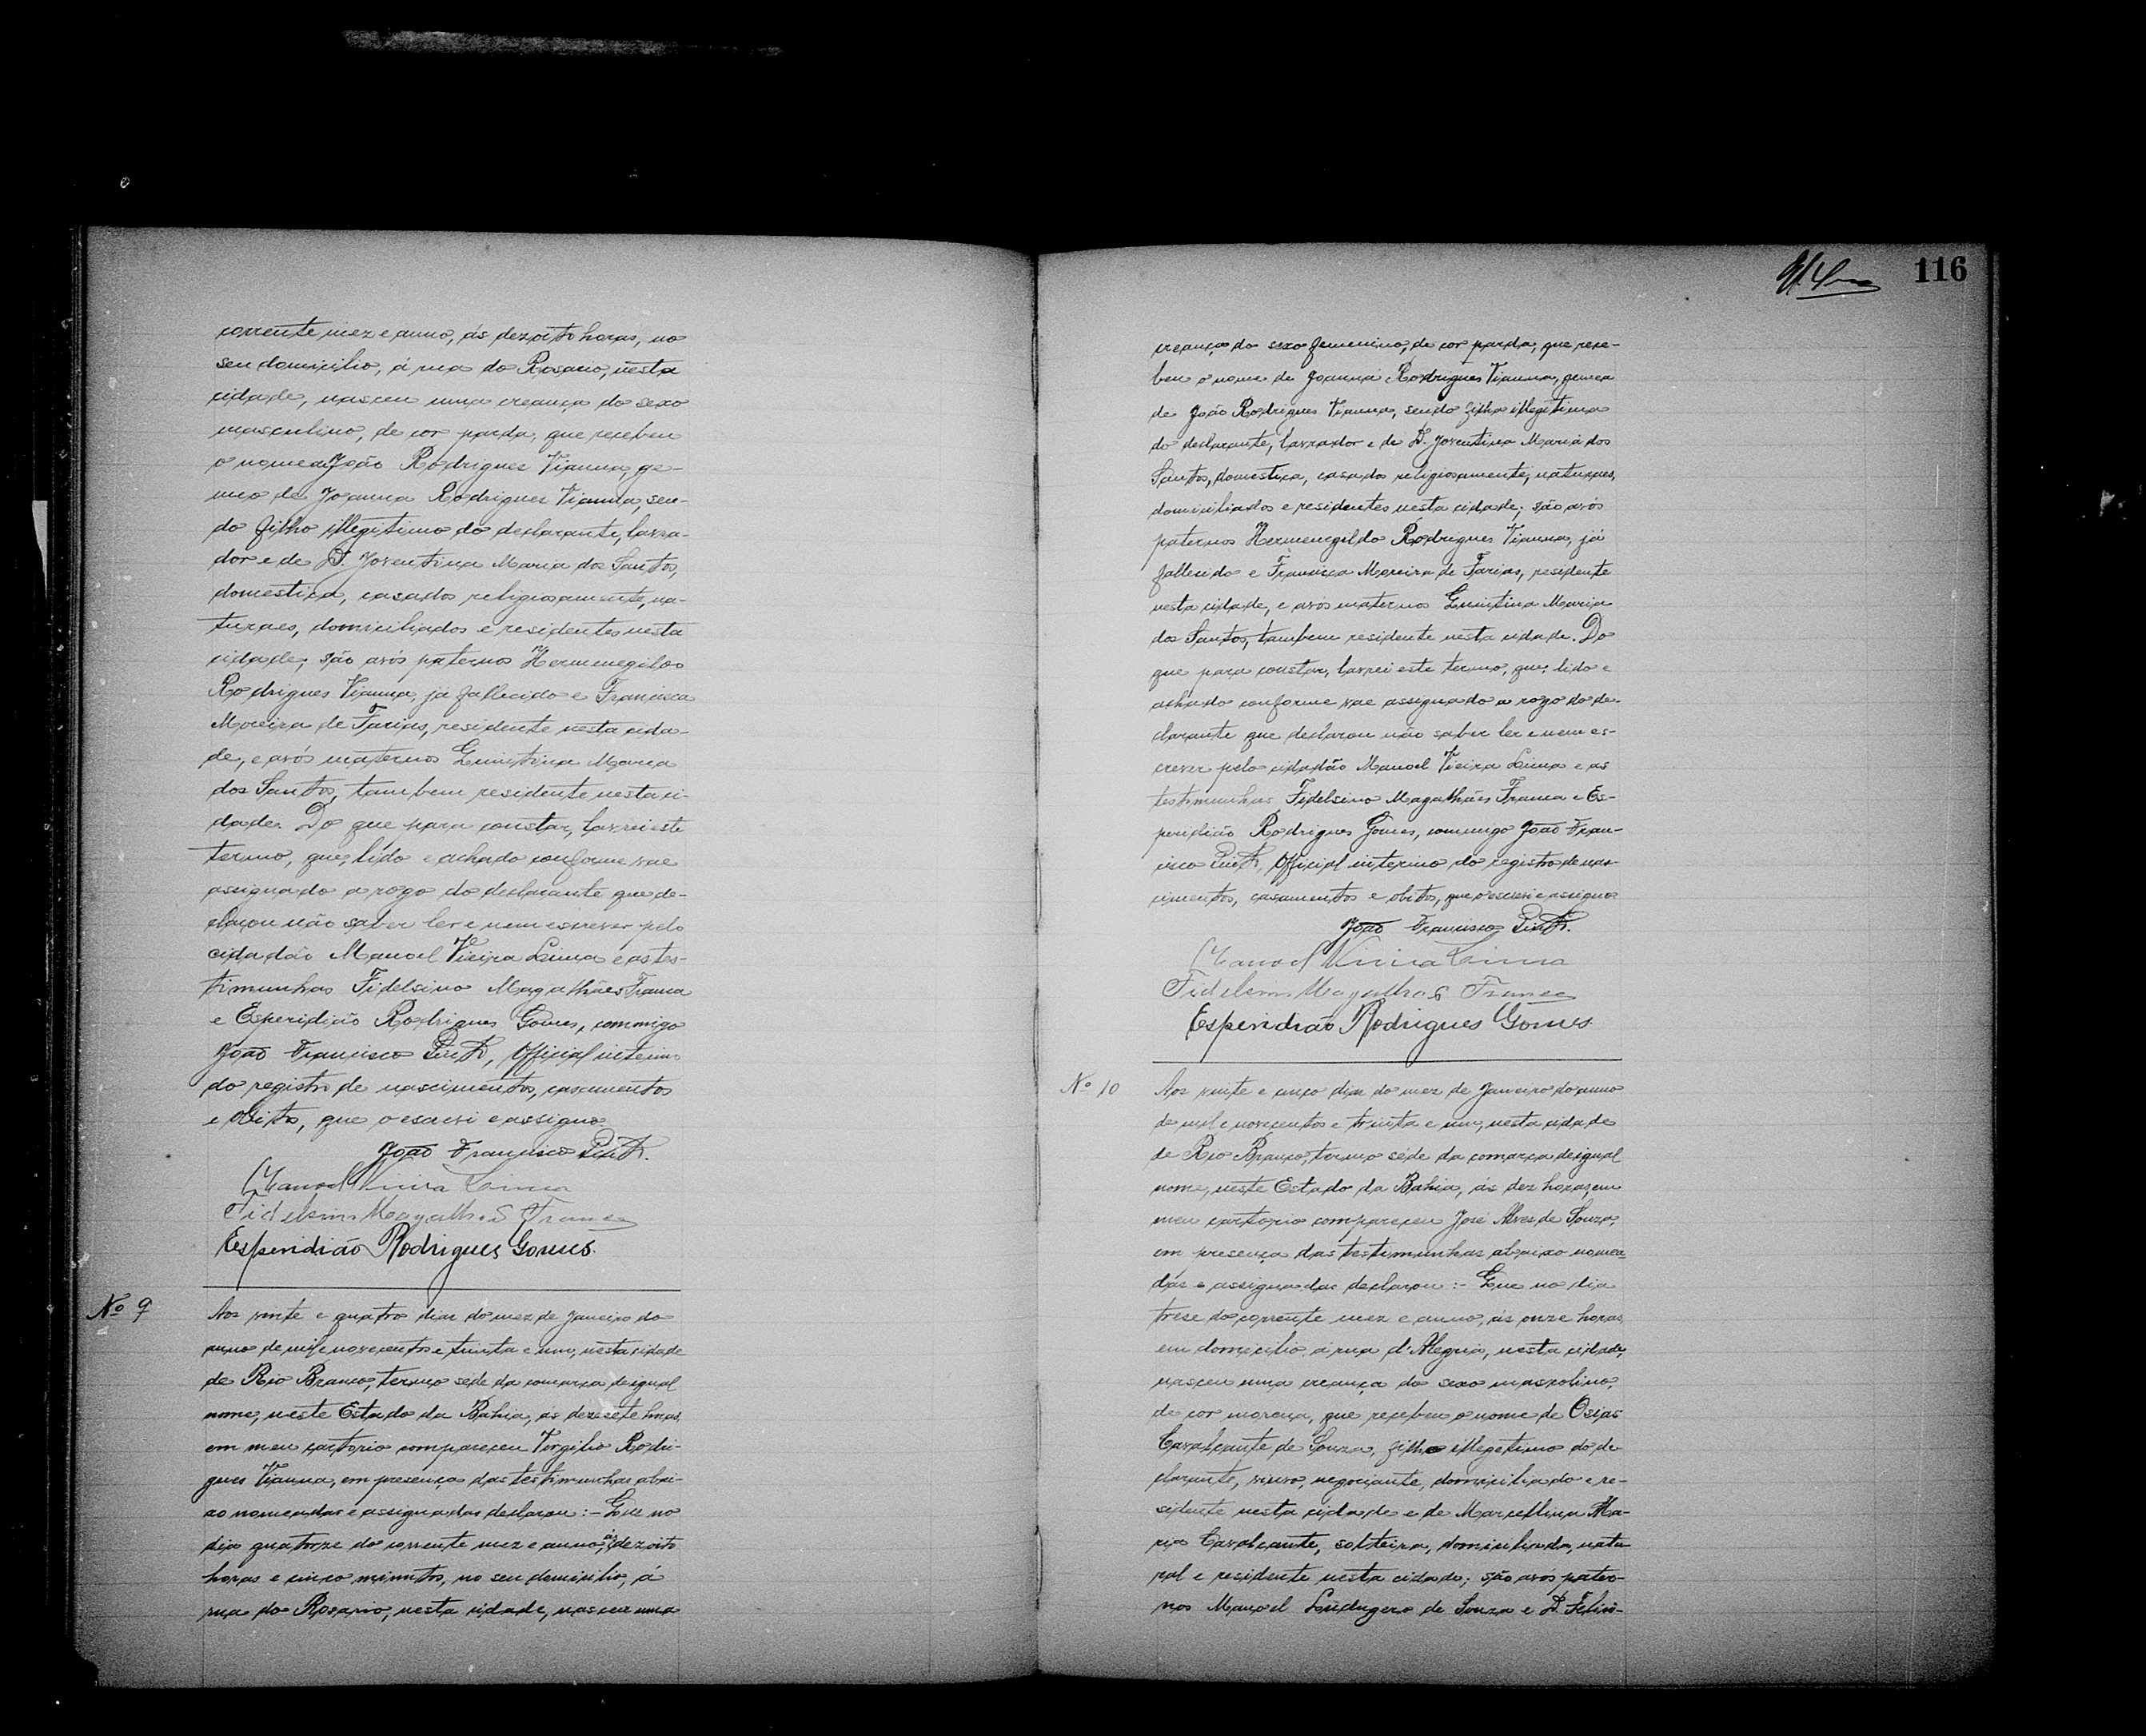 corrente mez e anno, ás dezoito horas, no
seu domicilio, á rua do Rosario, nesta
cidade, nasceu uma creança do sexo
masculino, de cor parda, que recebeu
o nome João Rodrigues Vianna, ge-
meo de Joanna Rodrigues Vianna, sen-
do filho illegitimo do declarante, lavra-
dor e de D. Joventina Maria dos Santos,
domestica, casados religiosamente, na-
turaes, domiciliados e residentes nesta
cidade; são avós paternos Hermenegildo
Rodrigues Vianna, já fallecido e Francisca
Moreira de Farias, residente nesta cida-
de, e avós maternos Quintina Maria
dos Santos, tambem residente nesta ci-
dade. Do que para constar, lavrei este
termo, que, lido e achado conforme vae
assignado a rogo do declarante que de-
clarou não saber ler e nem escrever pelo
cidadão Manoel Vieira Lima e as tes-
timunhas Fidelsino Magalhães Franca
e Esperidião Rodrigues Gomes, commigo
João Francisco Pinto, Official interino
do registro de nascimentos, casamentos
e obitos, que o escrevi e assigno
João Francisco Pinto.
Manoel Vieira Lima
Fidelsino Magalhães Franca
Esperidião Rodrigues Gomes.
Nº 9
Aos vinte e quatro dias do mez de Janeiro do
anno de mil e novecentos e trinta e um, nesta cidade
de Rio Branco, termo sede da comarca de igual
nome, neste Estado da Bahia, ás dezesete horas,
em meu cartorio compareceu Virgilio Rodri-
gues Vianna, em presença das testimunhas abai-
xo nomeadas e assignadas declarou:- Que no
dia quatorze do corrente mez e anno, ás dezoito
horas e cinco minutos, no seu domicilio, á
rua do Rosario, nesta cidade, nasceu uma
116
creança do sexo femenino, de cor parda, que rece-
beu o nome de Joanna Rodrigues Vianna, gemea
de João Rodrigues Vianna, sendo filha illegitima
do declarante, lavrador e de D. Joventina Maria dos
Santos, domestica, casados religiosamente, naturaes,
domiciliados e residentes nesta cidade; são avós
paternos Hermenegildo Rodrigues Vianna, já
fallecido e Francisca Moreira de Farias, residente
nesta cidade, e avós maternos Quintina Maria
dos Santos, tambem residente nesta cidade. Do
que para constar, lavrei este termo, que, lido e
achado conforme vae assignado a rogo do de-
clarante que declarou não saber ler e nem es-
crever pelo cidadão Manoel Vieira Lima e as
testimunhas Fidelsino Magalhães Franca e Es-
peridião Rodrigues Gomes, commigo João Fran-
cisco Pinto, Official interino do registro de nas-
cimentos, casamentos e obitos, que o escrevi e assigno
João Francisco Pinto.
Manoel Vieira Lima
Fidelsino Magalhães Franca
Esperidião Rodrigues Gomes.
Nº 10
Aos vinte e cinco dias do mez de Janeiro do anno
de mil e novecentos e trinta e um, nesta cidade
de Rio Branco, termo séde da comarca de igual
nome, neste Estado da Bahia, ás dez horas, em
meu cartorio compareceu José Alves de Souza,
em presença das testimunhas abaixo nomea-
das e assignadas declarou:- Que no dia
trese do corrente mez e anno, ás onze horas,
em domicilio á rua d'Alegria, nesta cidade,
nasceu uma creança do sexo mascolino,
de cor morena, que recebeu o nome de Osias
Cavalcante de Souza, filho illegetimo do de-
clarante, viuvo, negociante, domiciliado e re-
sidente nesta cidade e de Marcellina Ma-
ria Cavalcante, solteira, domiciliada, natu-
ral e residente nesta cidade; são avos pater-
nos Manoel Ludugero de Souza e D. Felis-